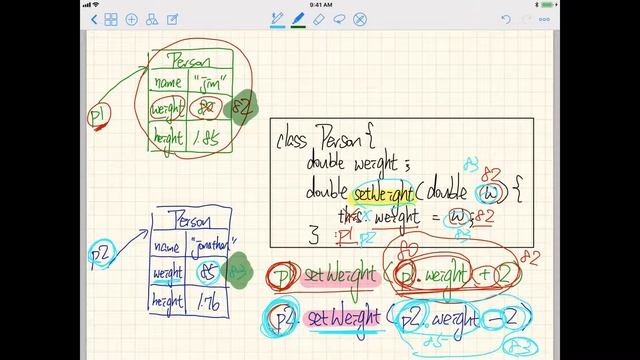 9:41 AM
Person
name "jim"
weight 80 82
height 1.85
p1
class Person {
double weight;
83 82
double setWeight (double w) {
this weight = w; 82
} p1 p2 83
80 82
p1. setWeight (p1.weight + 2)
p2. setWeight (p2.weight - 2)
85 83
Person
name "jonathan"
weight 85 83
height 1.76
p2